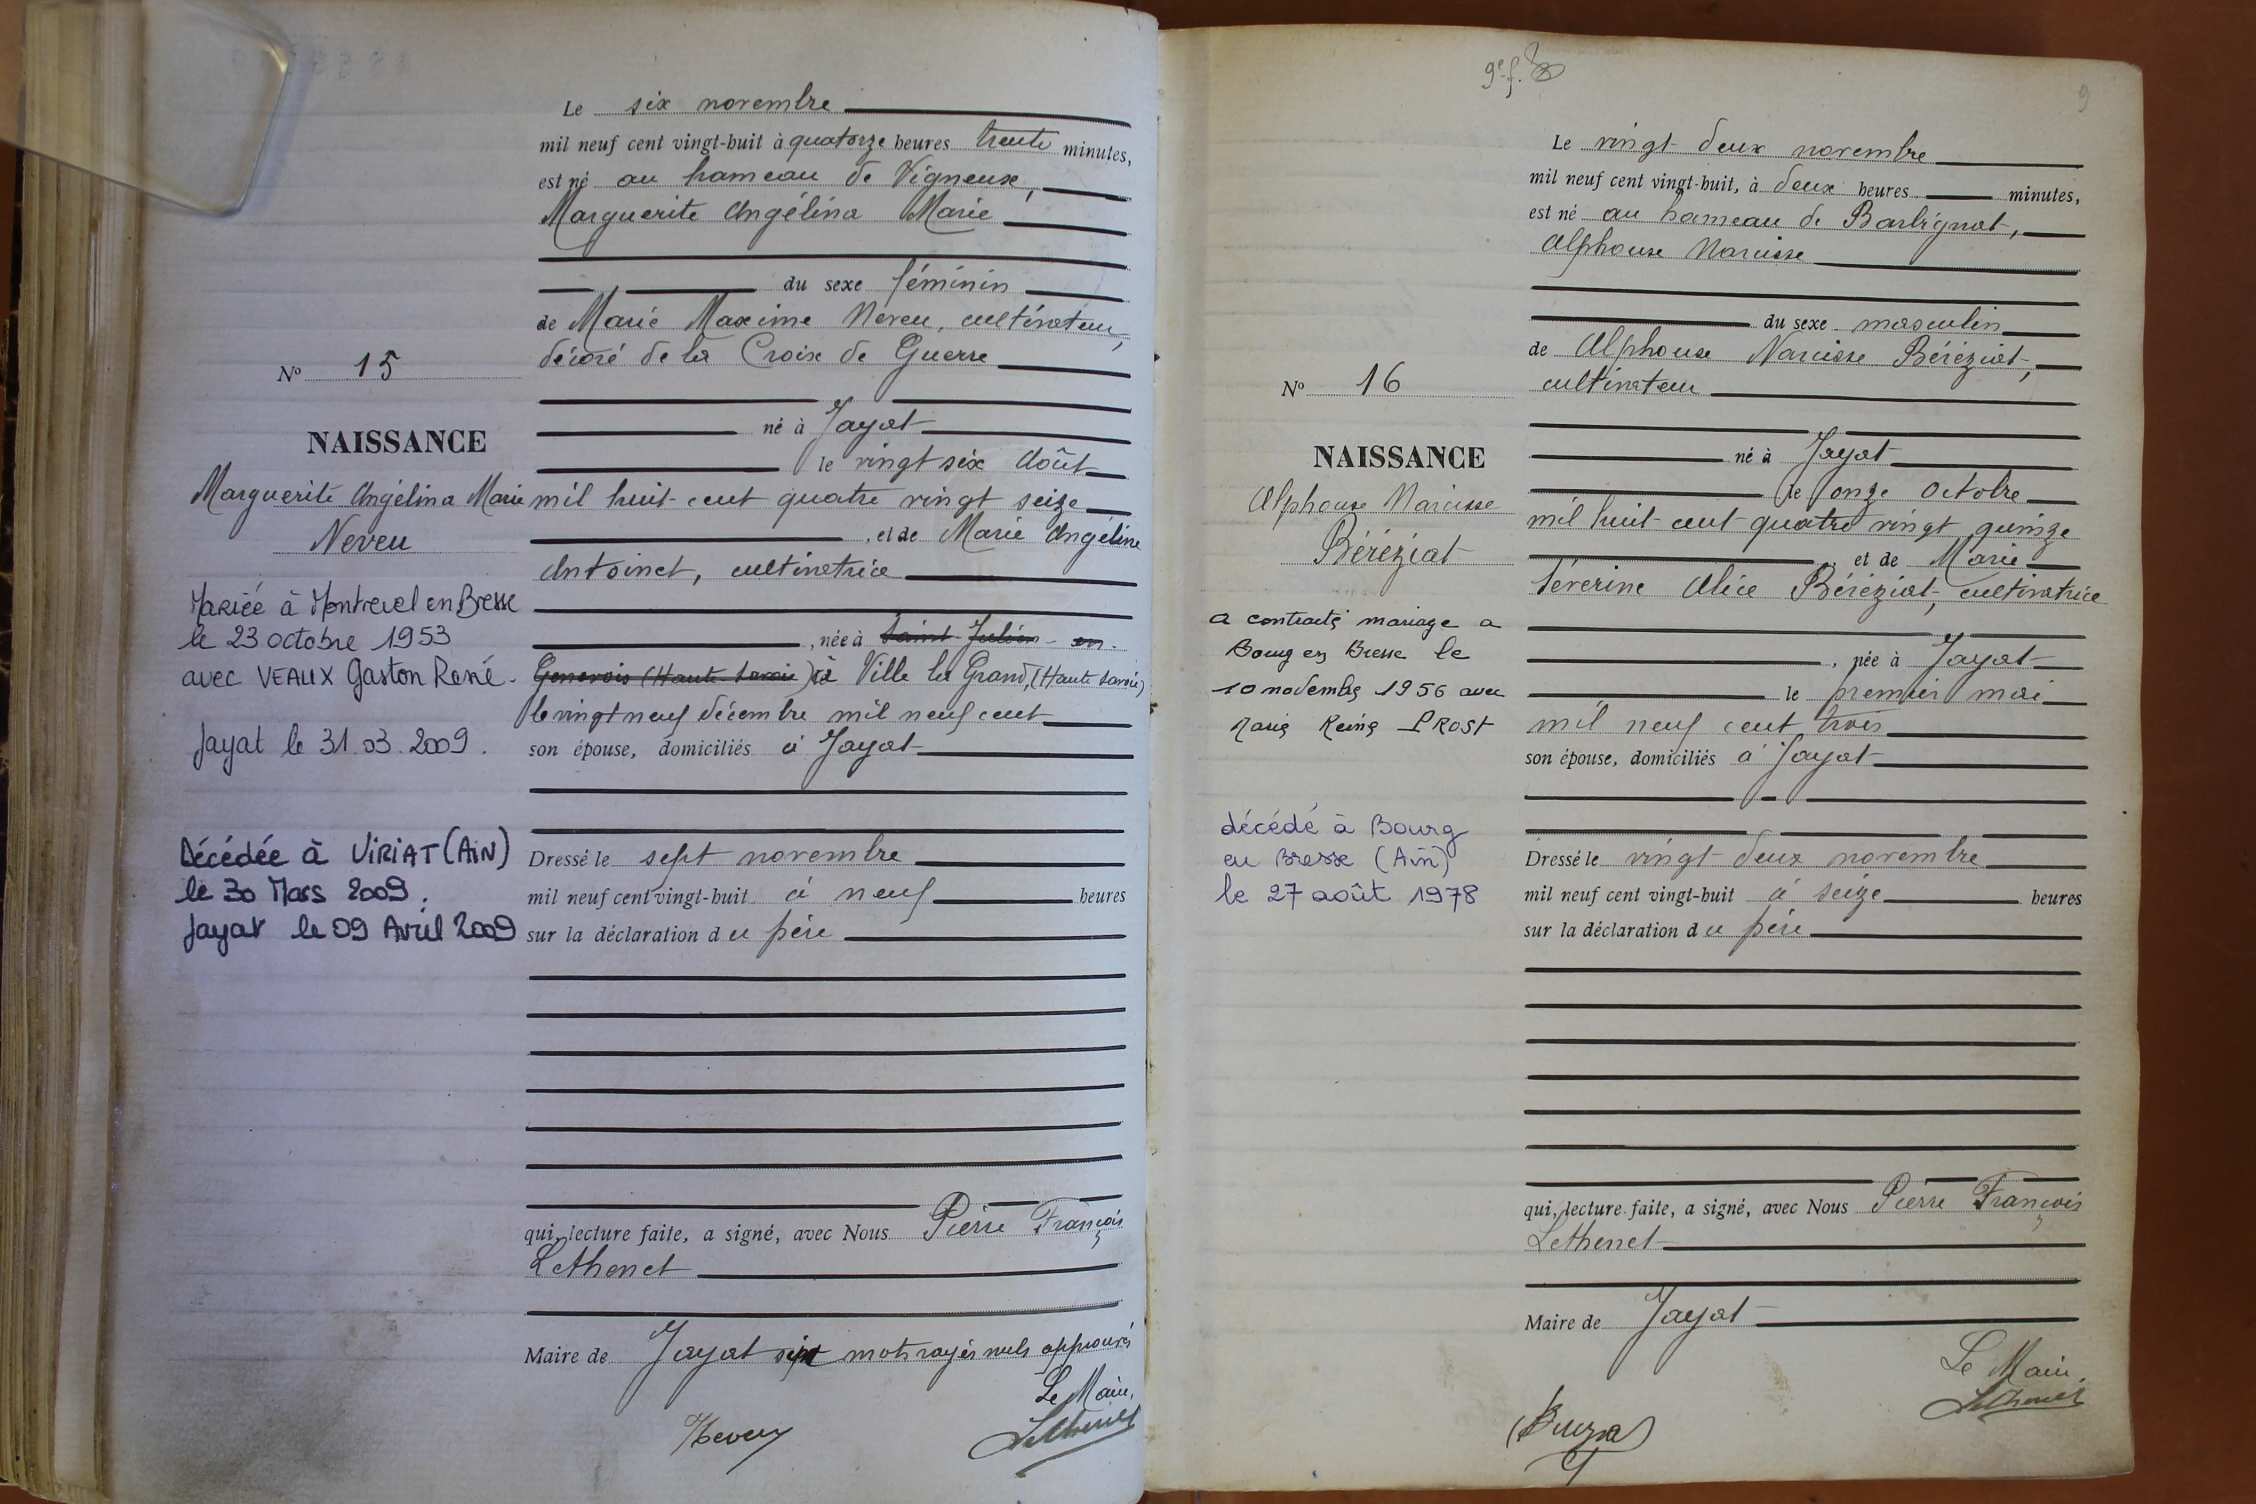 Le six novembre
mil neuf cent vingt-huit à quatorze heures trente minutes,
est né au hameau de Vigneux,
Marguerite Angélina Marie
du sexe féminin
de Marie Maxime Neveu, cultivateur,
décoré de la Croix de Guerre
né à Jayat
le vingt six Août
mil huit cent quatre vingt seize
, et de Marie Angéline
Antoinet, cultivatrice
, née à Saint-Julien-en-
Genevois (Haute-Savoie) à Ville la Grand, (Haute Savoie)
le vingt neuf décembre mil neuf cent
son épouse, domiciliés à Jayat
Dressé le sept novembre
mil neuf cent vingt-huit à neuf heures
sur la déclaration du père
qui, lecture faite, a signé, avec Nous Pierre François
Lethenet
Maire de Jayat sept mots rayés nuls approuvés
Le Maire,
Neveu
Lethenet
N° 15
NAISSANCE
Marguerite Angélina Marie
Neveu
Mariée à Montrevel en Bresse
le 23 octobre 1953
avec VEAUX Gaston René.
Jayat le 31.03.2009.
Décédée à VIRIAT (AIN)
le 30 Mars 2009.
Jayat le 09 Avril 2009
9e f.
9
Le vingt-deux novembre
mil neuf cent vingt-huit, à deux heures minutes,
est né au hameau de Barbignat,
Alphonse Narcisse
du sexe masculin
de Alphonse Narcisse Béréziat,
cultivateur
né à Jayat
le onze Octobre
mil huit cent quatre vingt quinze
et de Marie
Séverine Alice Béréziat, cultivatrice
, née à Jayat
le premier mai
mil neuf cent trois
son épouse, domiciliés à Jayat
Dressé le vingt-deux novembre
mil neuf cent vingt-huit à seize heures
sur la déclaration du père
qui, lecture faite, a signé, avec Nous Pierre François
Lethenet
Maire de Jayat
Le Maire,
Lethenet
N° 16
NAISSANCE
Alphonse Narcisse
Béréziat
a contracté mariage a
Bourg en Bresse le
10 novembre 1956 avec
Marie Reine PROST
décédé à Bourg
en Bresse (Ain)
le 27 août 1978